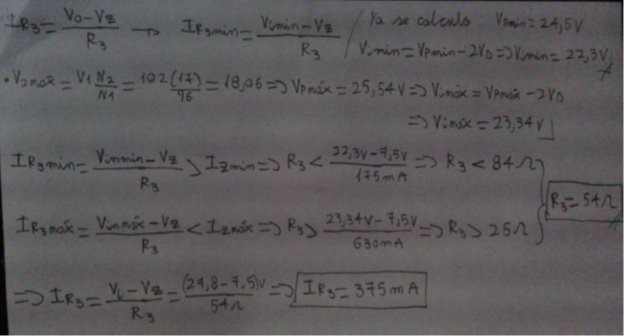 IR3 = (Vo - Vz)/R3 → IR3min = (Vimin - Vz)/R3 / Ya se calculo: Vpmin = 24,5V
Vimin = Vpmin - 2VD => Vimin = 22,3V
• V2máx = V1 N2/N1 = 102(17)/96 = 18,06 => Vpmáx = 25,54V => Vimáx = Vpmáx - 2VD
=> Vimáx = 23,34V
IR3min = (Vinmin - Vz)/R3 > Izmin => R3 < (22,3V - 7,5V)/175mA => R3 < 84Ω
R3 = 54Ω
IR3máx = (Vinmáx - Vz)/R3 < Izmáx => R3 > (23,34V - 7,5V)/630mA => R3 > 25Ω
=> IR3 = (Vi - Vz)/R3 = (27,8 - 7,5)V/54Ω => IR3 = 375mA